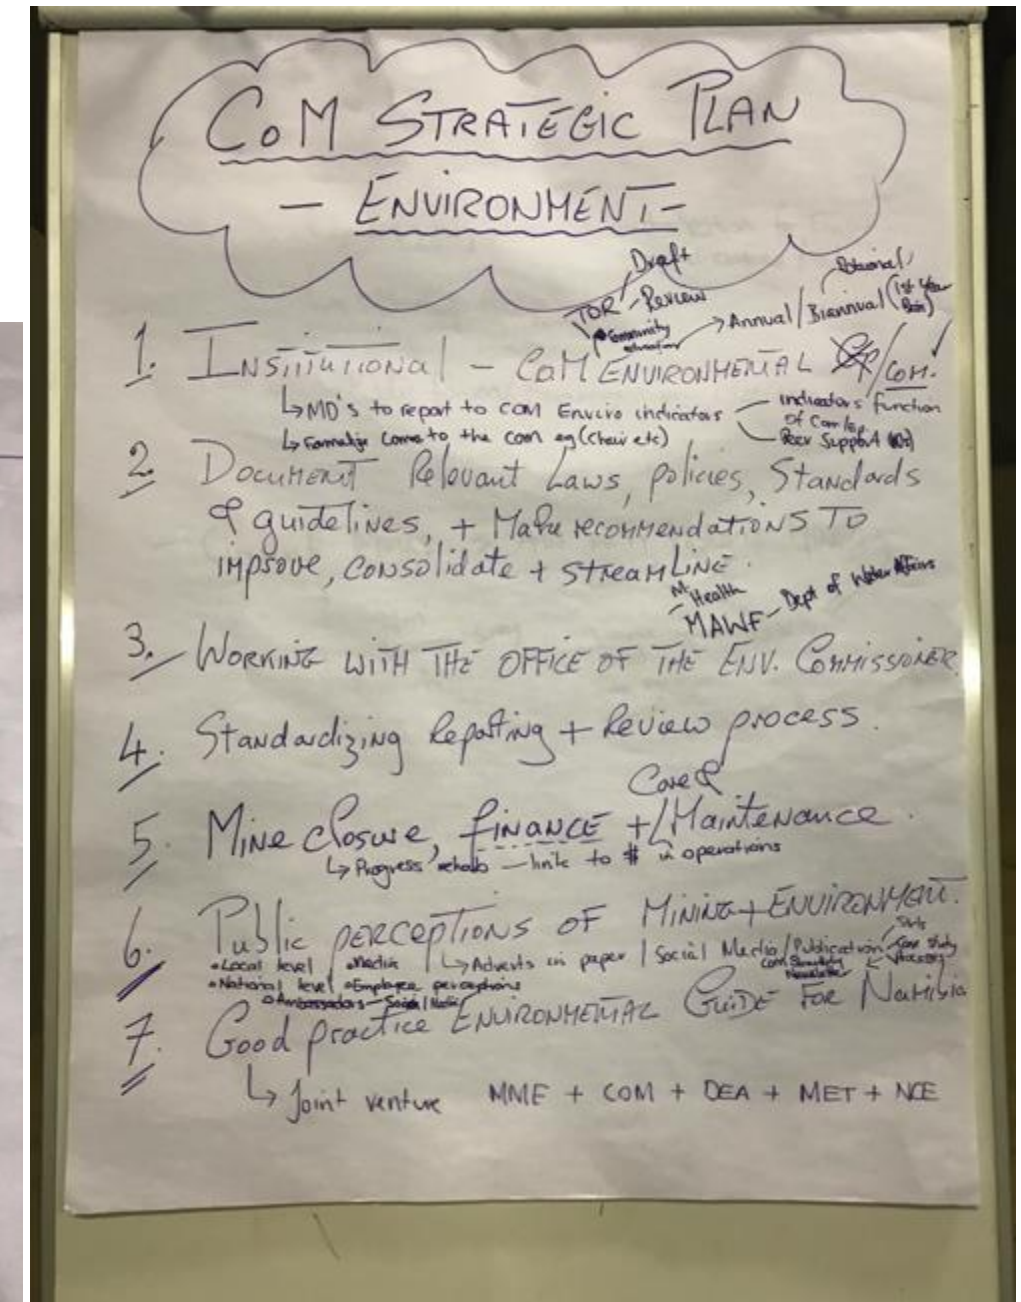 CoM STRATEGIC PLAN
- ENVIRONMENT -
Draft
TOR - Review
Annual / Biannual (1st Year
1. INSTITUTIONAL - CoM ENVIRONMENTAL /COM.
↳ MD's to report to COM Enviro indicators
Indicators function
of Com
↳ Formalize to the com eg (Chair etc)
Peer Support
2. DOCUMENT Relevant Laws, policies, Standards
& guidelines, + Make recommendations TO
improve, consolidate + STREAMLINE.
Health
MAWF - Dept of Water Affairs
3. WORKING WITH THE OFFICE OF THE ENV. COMMISSIONER
4. Standardizing Reporting + Review process.
Care &
5. Mine closure, FINANCE + / Maintenance.
↳ Progress rehab - link to # in operations
6. Public PERCEPTIONS OF MINING + ENVIRONMENT.
• Local level • Media ↳ Adverts in paper / Social Media / Publication
Newsletter
• National level • Employee perceptions
• Ambassadors - Social Media
7. Good practice ENVIRONMENTAL GUIDE FOR Namibia
↳ Joint venture MME + COM + DEA + MET + NCE